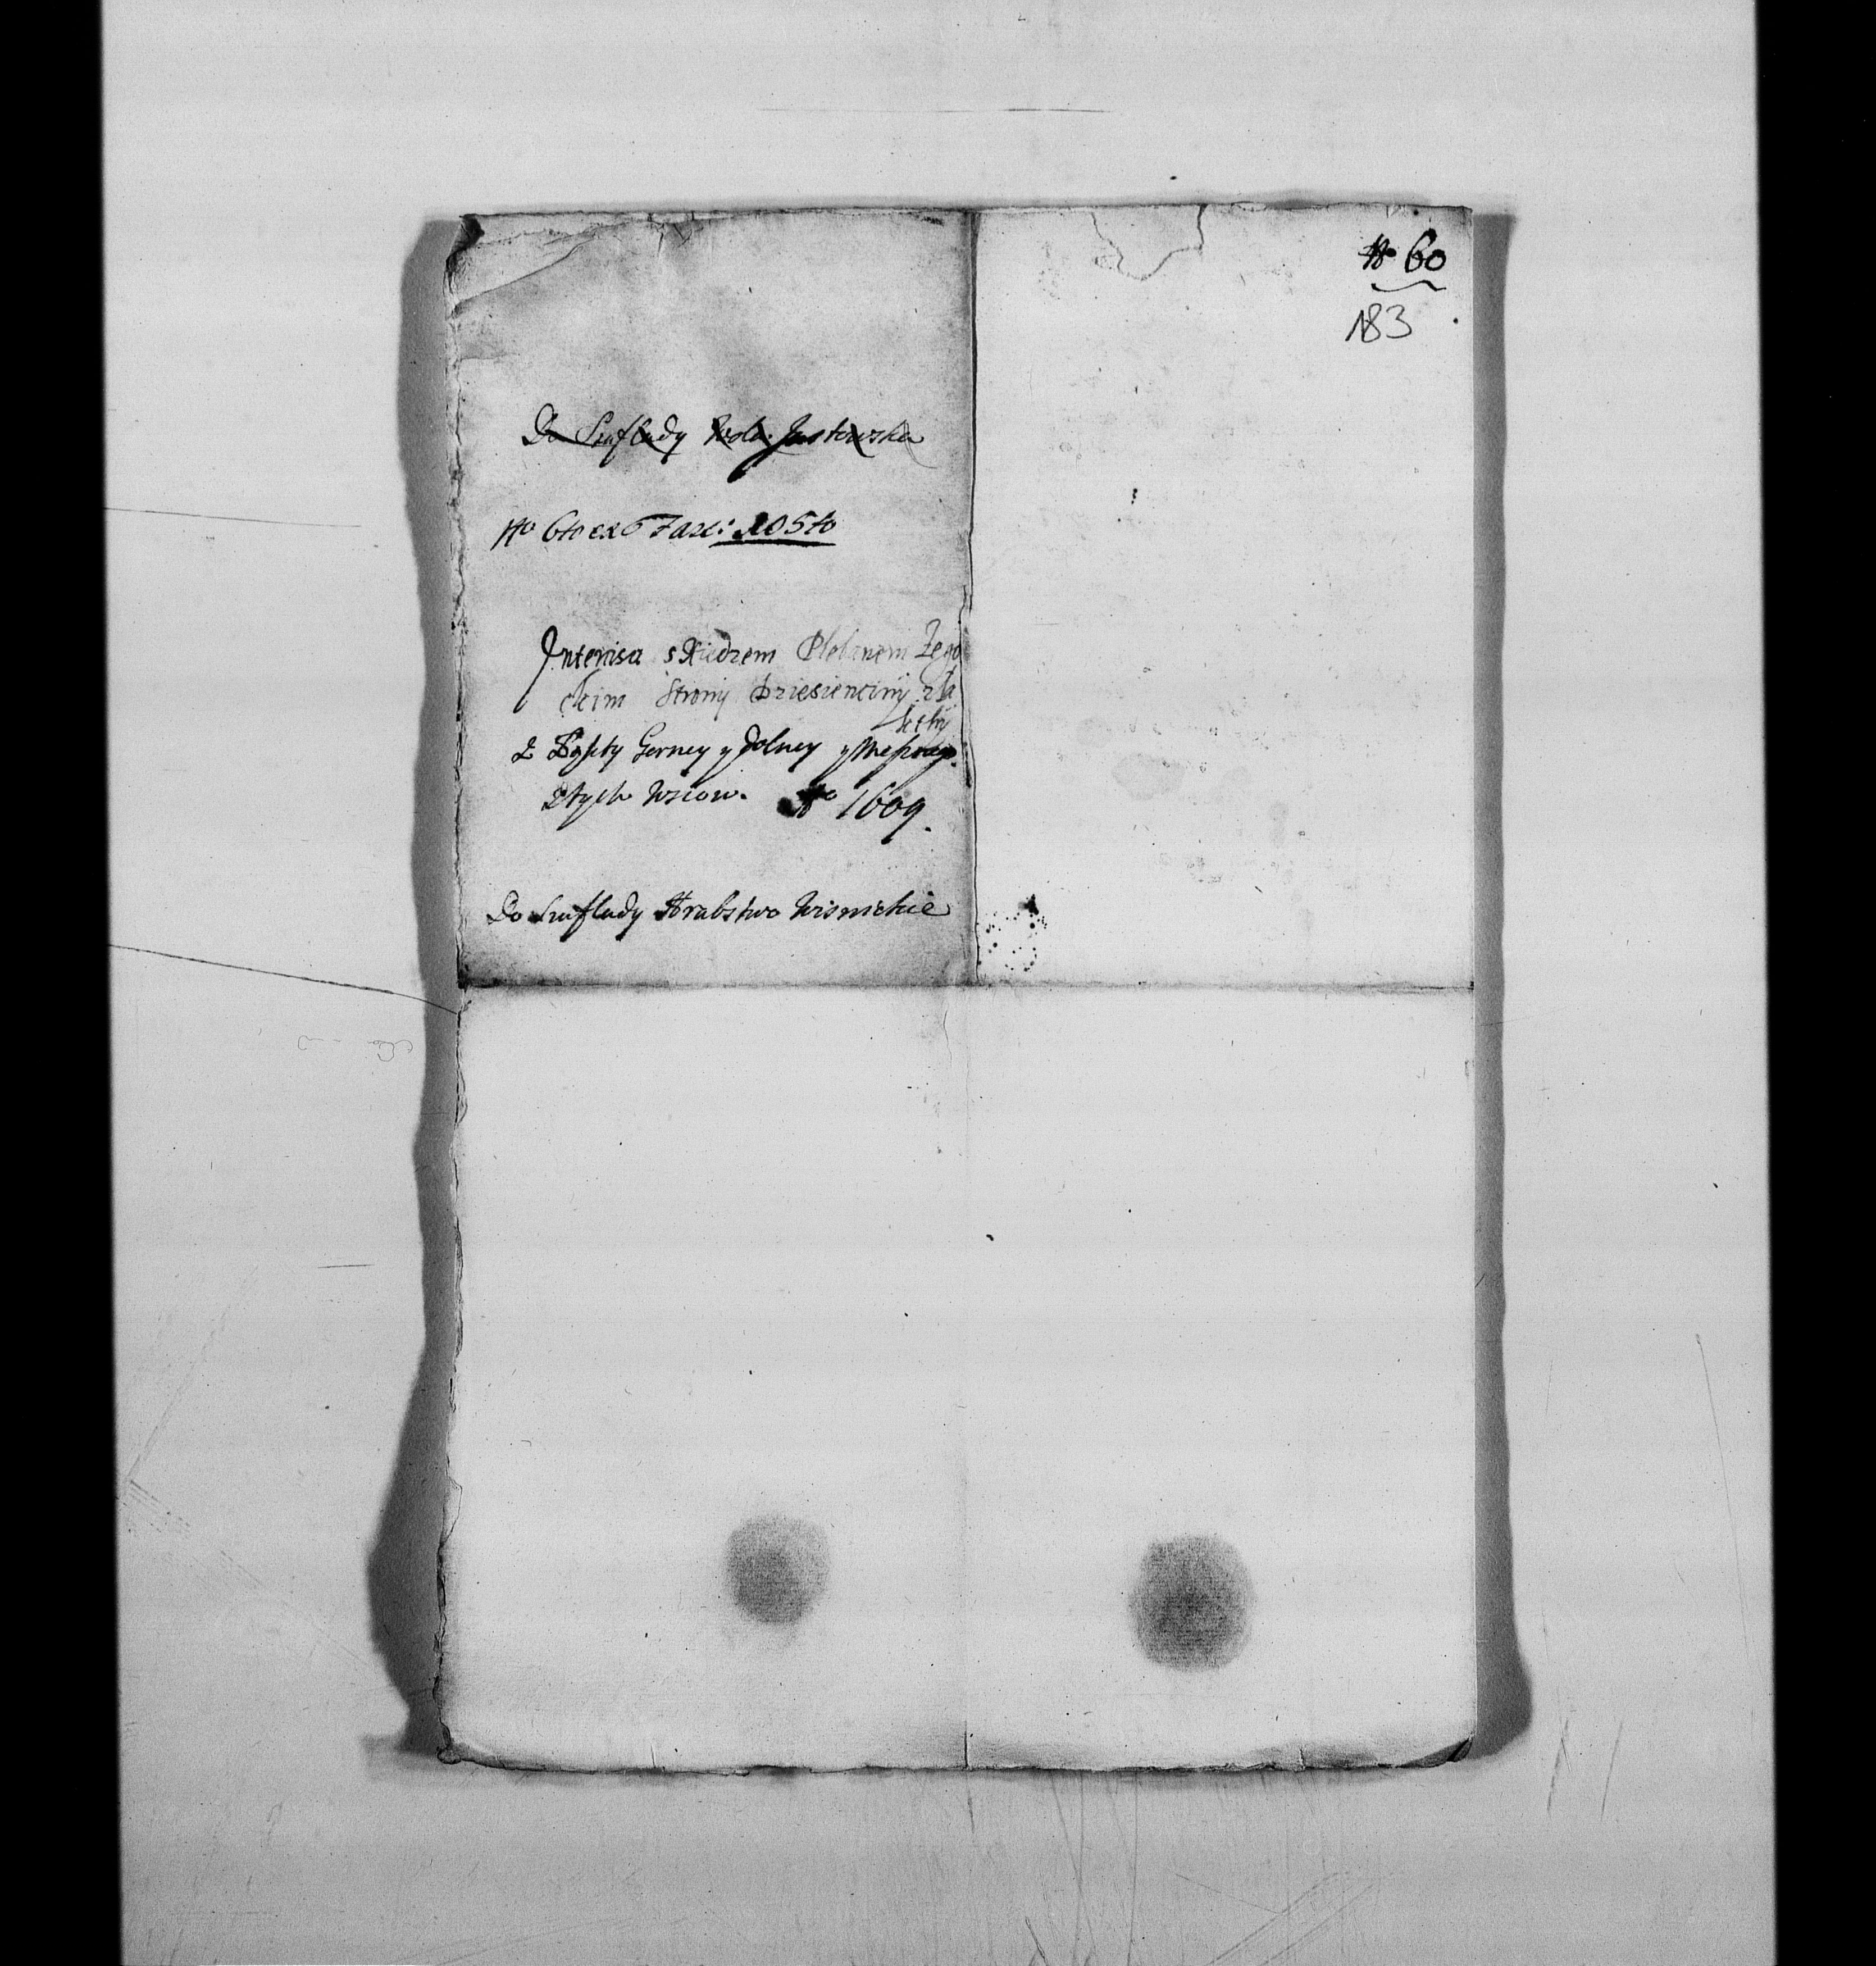 No 60
183
Do Szuflady Wola Justowska
No 6to ex 6 Fasc: 105to
Intercisa s Xiedzem Plebanem Zego
ckim strony dziesienciny zla
chty
z Gornej y Dolney y Meszneg
z tych Wsiow. Ao 1609.
Do Szuflady Hrabstwo Wisnickie